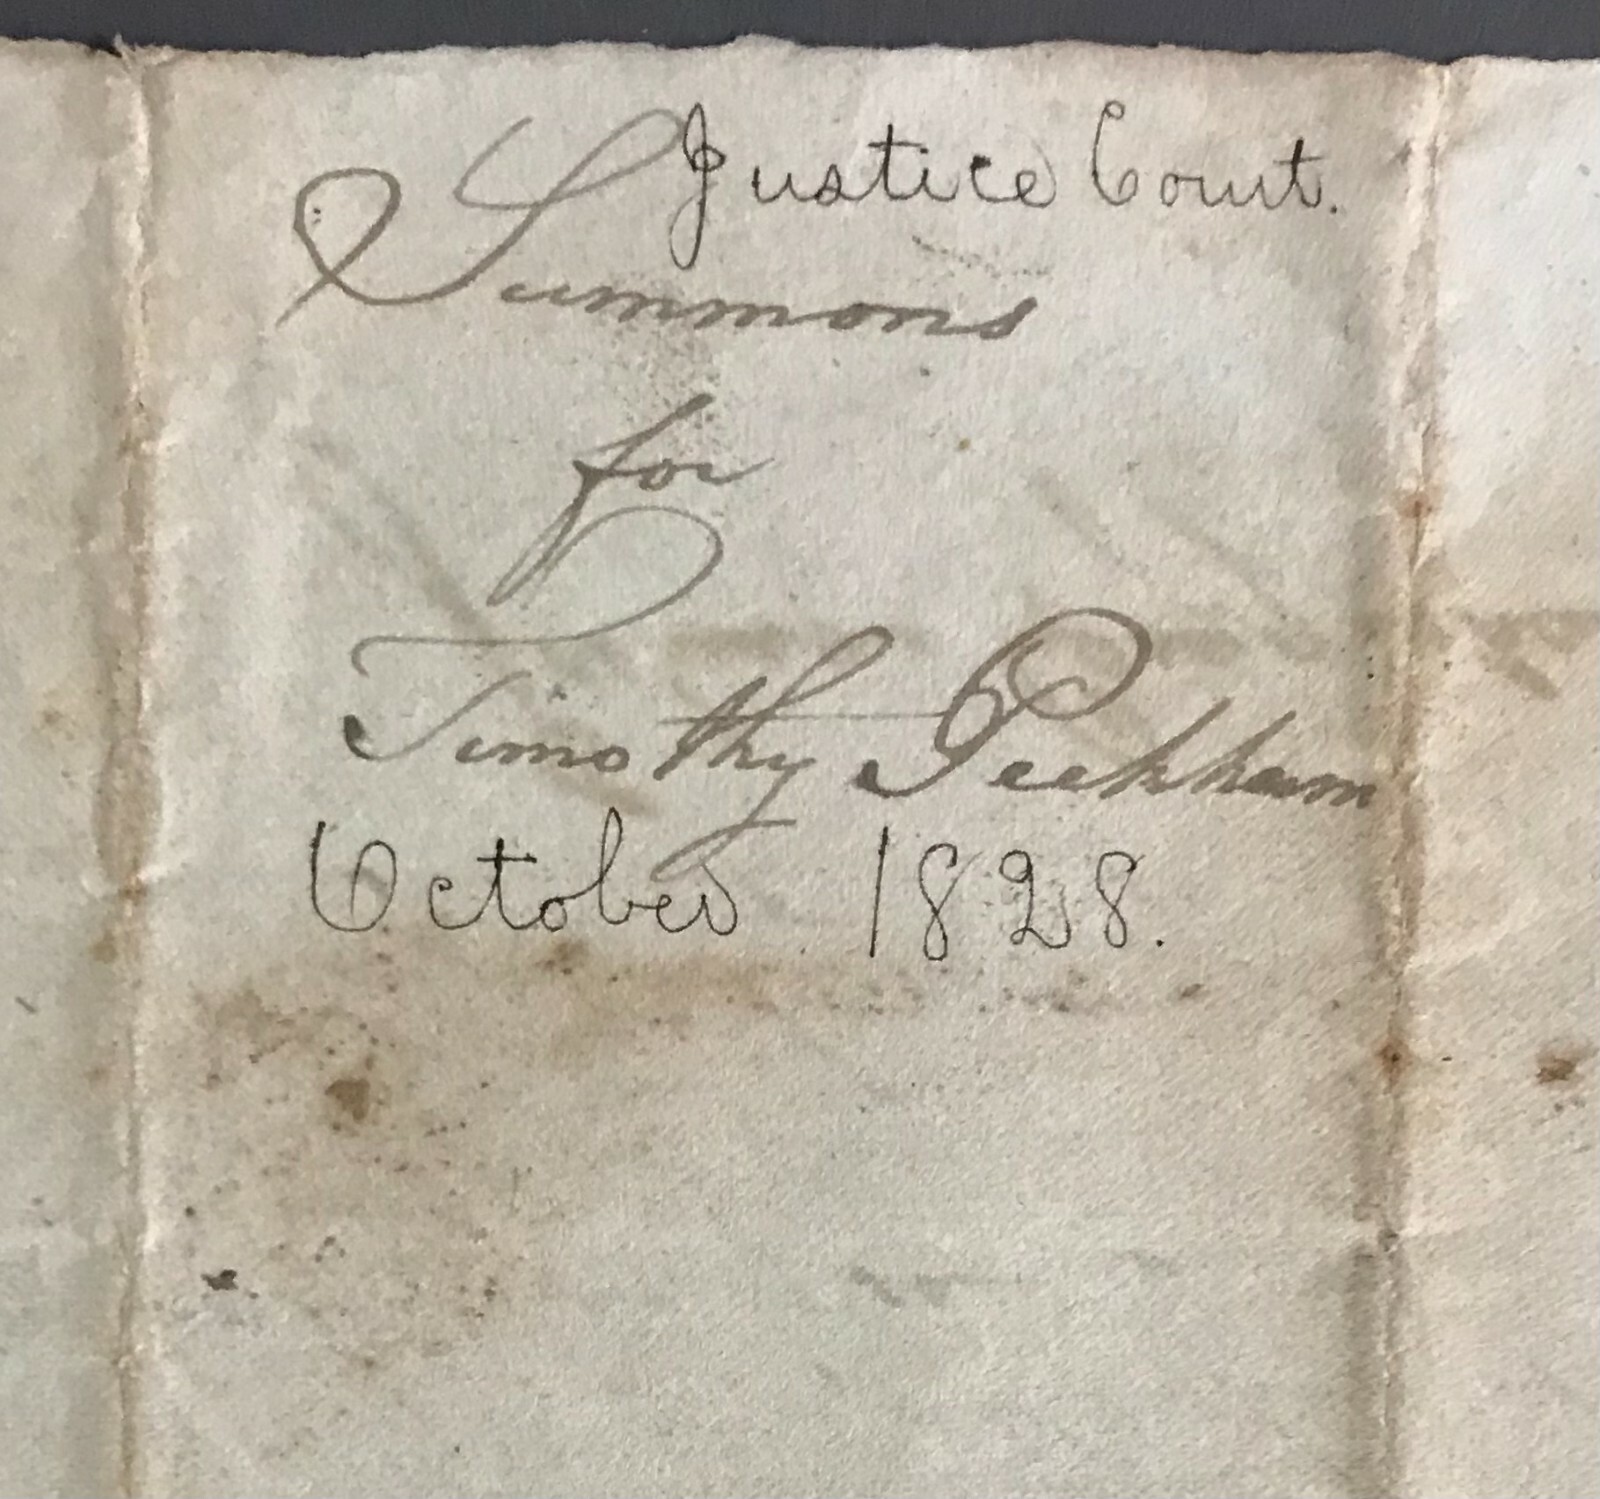 Justice Court.
Summons
for
Timothy Peckham
October 1828.